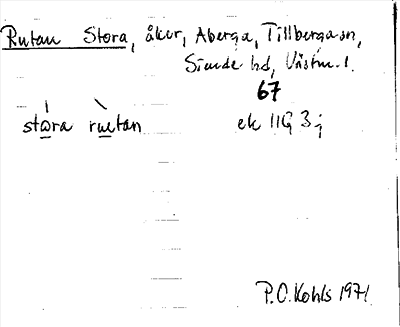 Rutan Stora, åker, Aberga, Tillberga sn,
Siende hd, Västm. l.
67
stora rutan ek 11G 3i
P.O. Kohls 1971